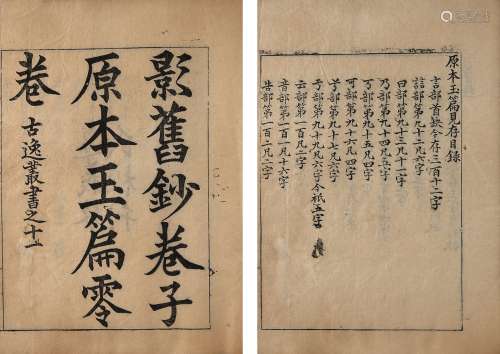 影舊鈔卷子
原本玉篇零
卷 古逸叢書之十一
原本玉篇見存目錄
言部首缺今存三百十二字
誩部第九十二凡六字
曰部第九十三凡十一字
乃部第九十四凡五字
丂部第九十五凡四字
可部第九十六凡四字
兮部第九十七凡六字
亏部第九十九凡六字今祇五字
云部第一百凡二字
音部第一百一凡十六字
告部第一百二凡二字